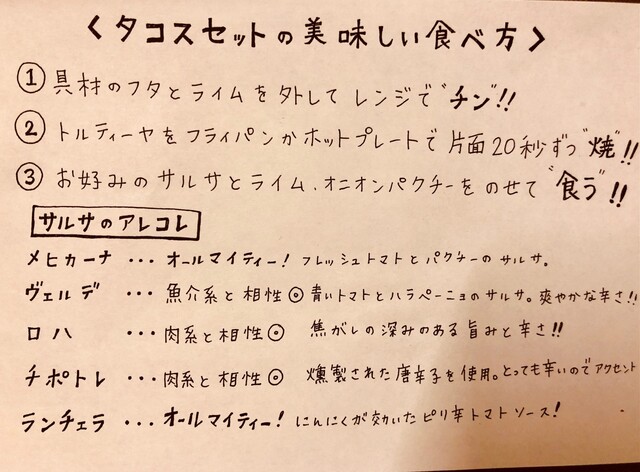 〈タコスセットの美味しい食べ方〉
① 具材のフタとライムを外してレンジで"チン"!!
② トルティーヤをフライパンかホットプレートで片面20秒ずつ"焼"!!
③ お好みのサルサとライム、オニオンパクチーをのせて"食う"!!
サルサのアレコレ
メヒカーナ ・・・ オールマイティー! フレッシュトマトとパクチーのサルサ。
ヴェルデ ・・・ 魚介系と相性◎ 青いトマトとハラペーニョのサルサ。爽やかな辛さ!!
ロハ ・・・ 肉系と相性◎ 焦がしの深みのある旨みと辛さ!!
チポトレ ・・・ 肉系と相性◎ 燻製された唐辛子を使用。とっても辛いのでアクセント
ランチェラ ・・・ オールマイティー! にんにくが効いたピリ辛トマトソース!